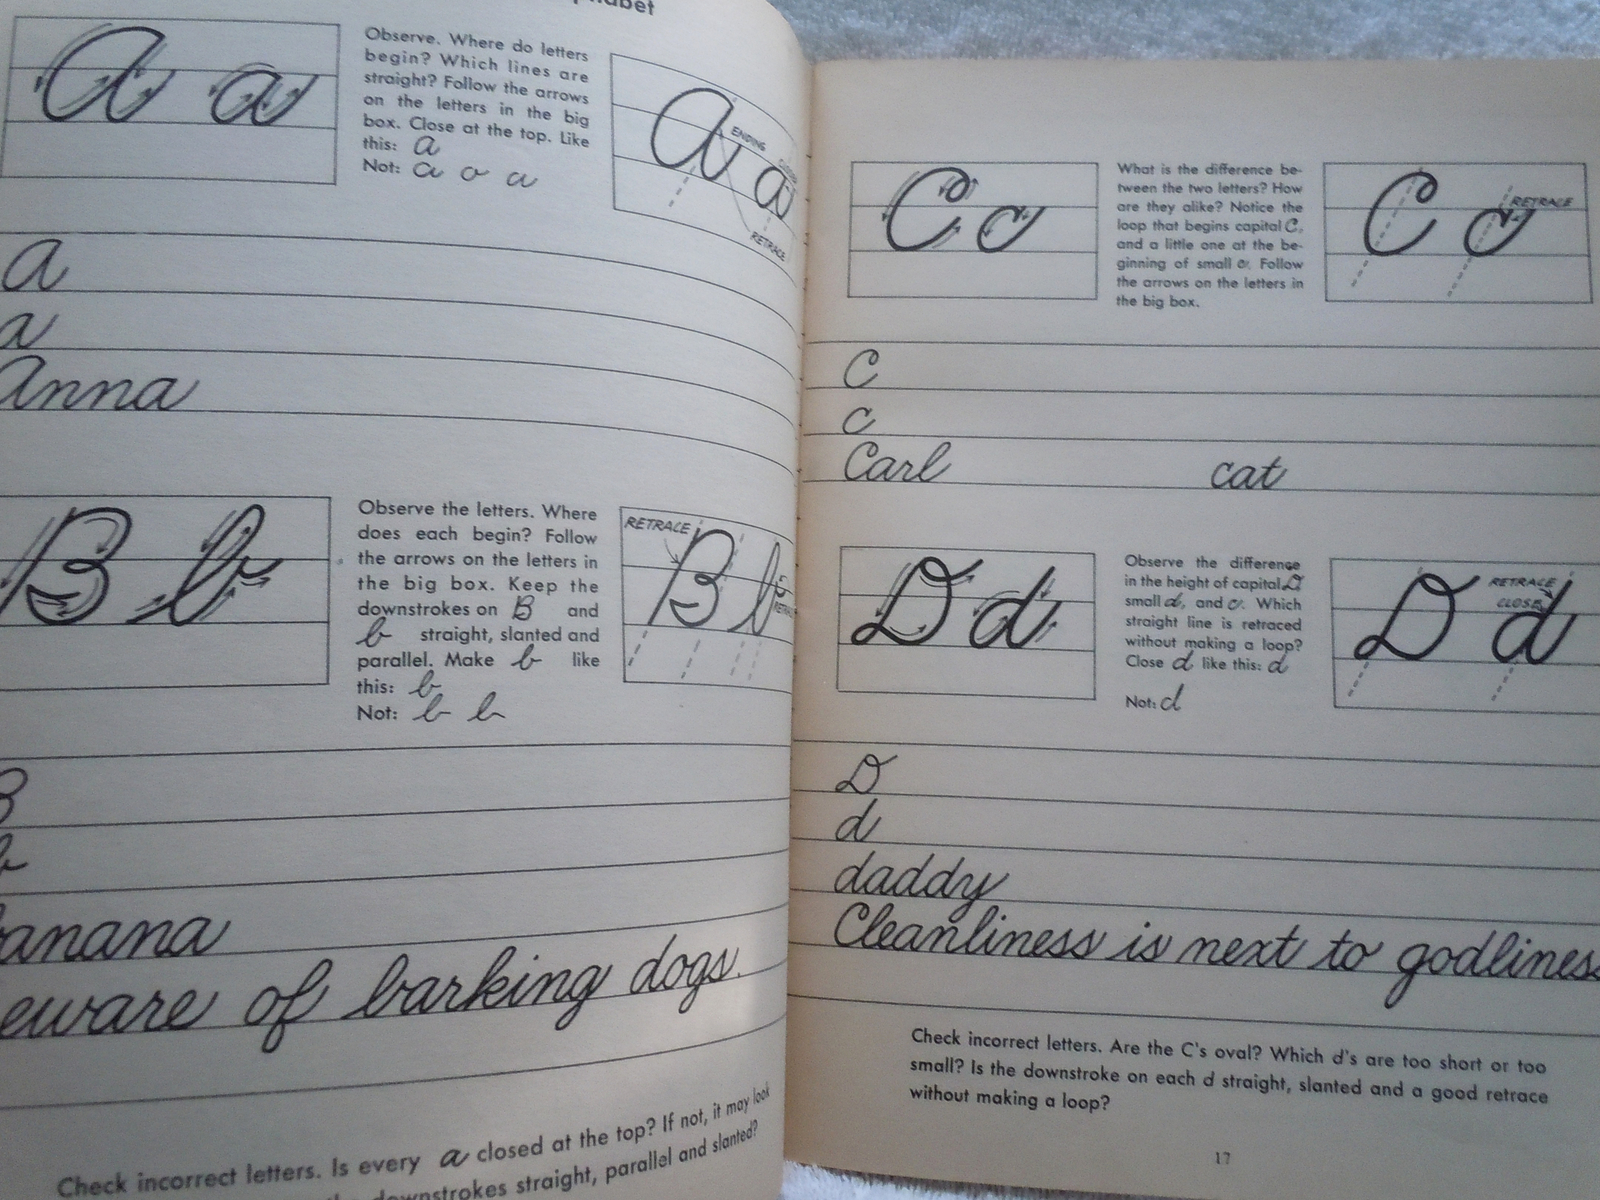 A a
Observe. Where do letters
begin? Which lines are
straight? Follow the arrows
on the letters in the big
box. Close at the top. Like
this: a
Not: a o a
A a
ENDING
RETRACE
a
a
Anna
B b
Observe the letters. Where
does each begin? Follow
the arrows on the letters in
the big box. Keep the
downstrokes on B and
b straight, slanted and
parallel. Make b like
this: b
Not: b b
RETRACE
B b
B
b
anana
eware of barking dogs.
Check incorrect letters. Is every a closed at the top? If not, it may look
downstrokes straight, parallel and slanted?
C c
What is the difference be-
tween the two letters? How
are they alike? Notice the
loop that begins capital C,
and a little one at the be-
ginning of small c. Follow
the arrows on the letters in
the big box.
C c
RETRACE
C
c
Carl cat
D d
Observe the difference
in the height of capital D
small d, and c. Which
straight line is retraced
without making a loop?
Close d like this: d
Not: d
D d
RETRACE
CLOSE
D
d
daddy
Cleanliness is next to godliness
Check incorrect letters. Are the C's oval? Which d's are too short or too
small? Is the downstroke on each d straight, slanted and a good retrace
without making a loop?
17